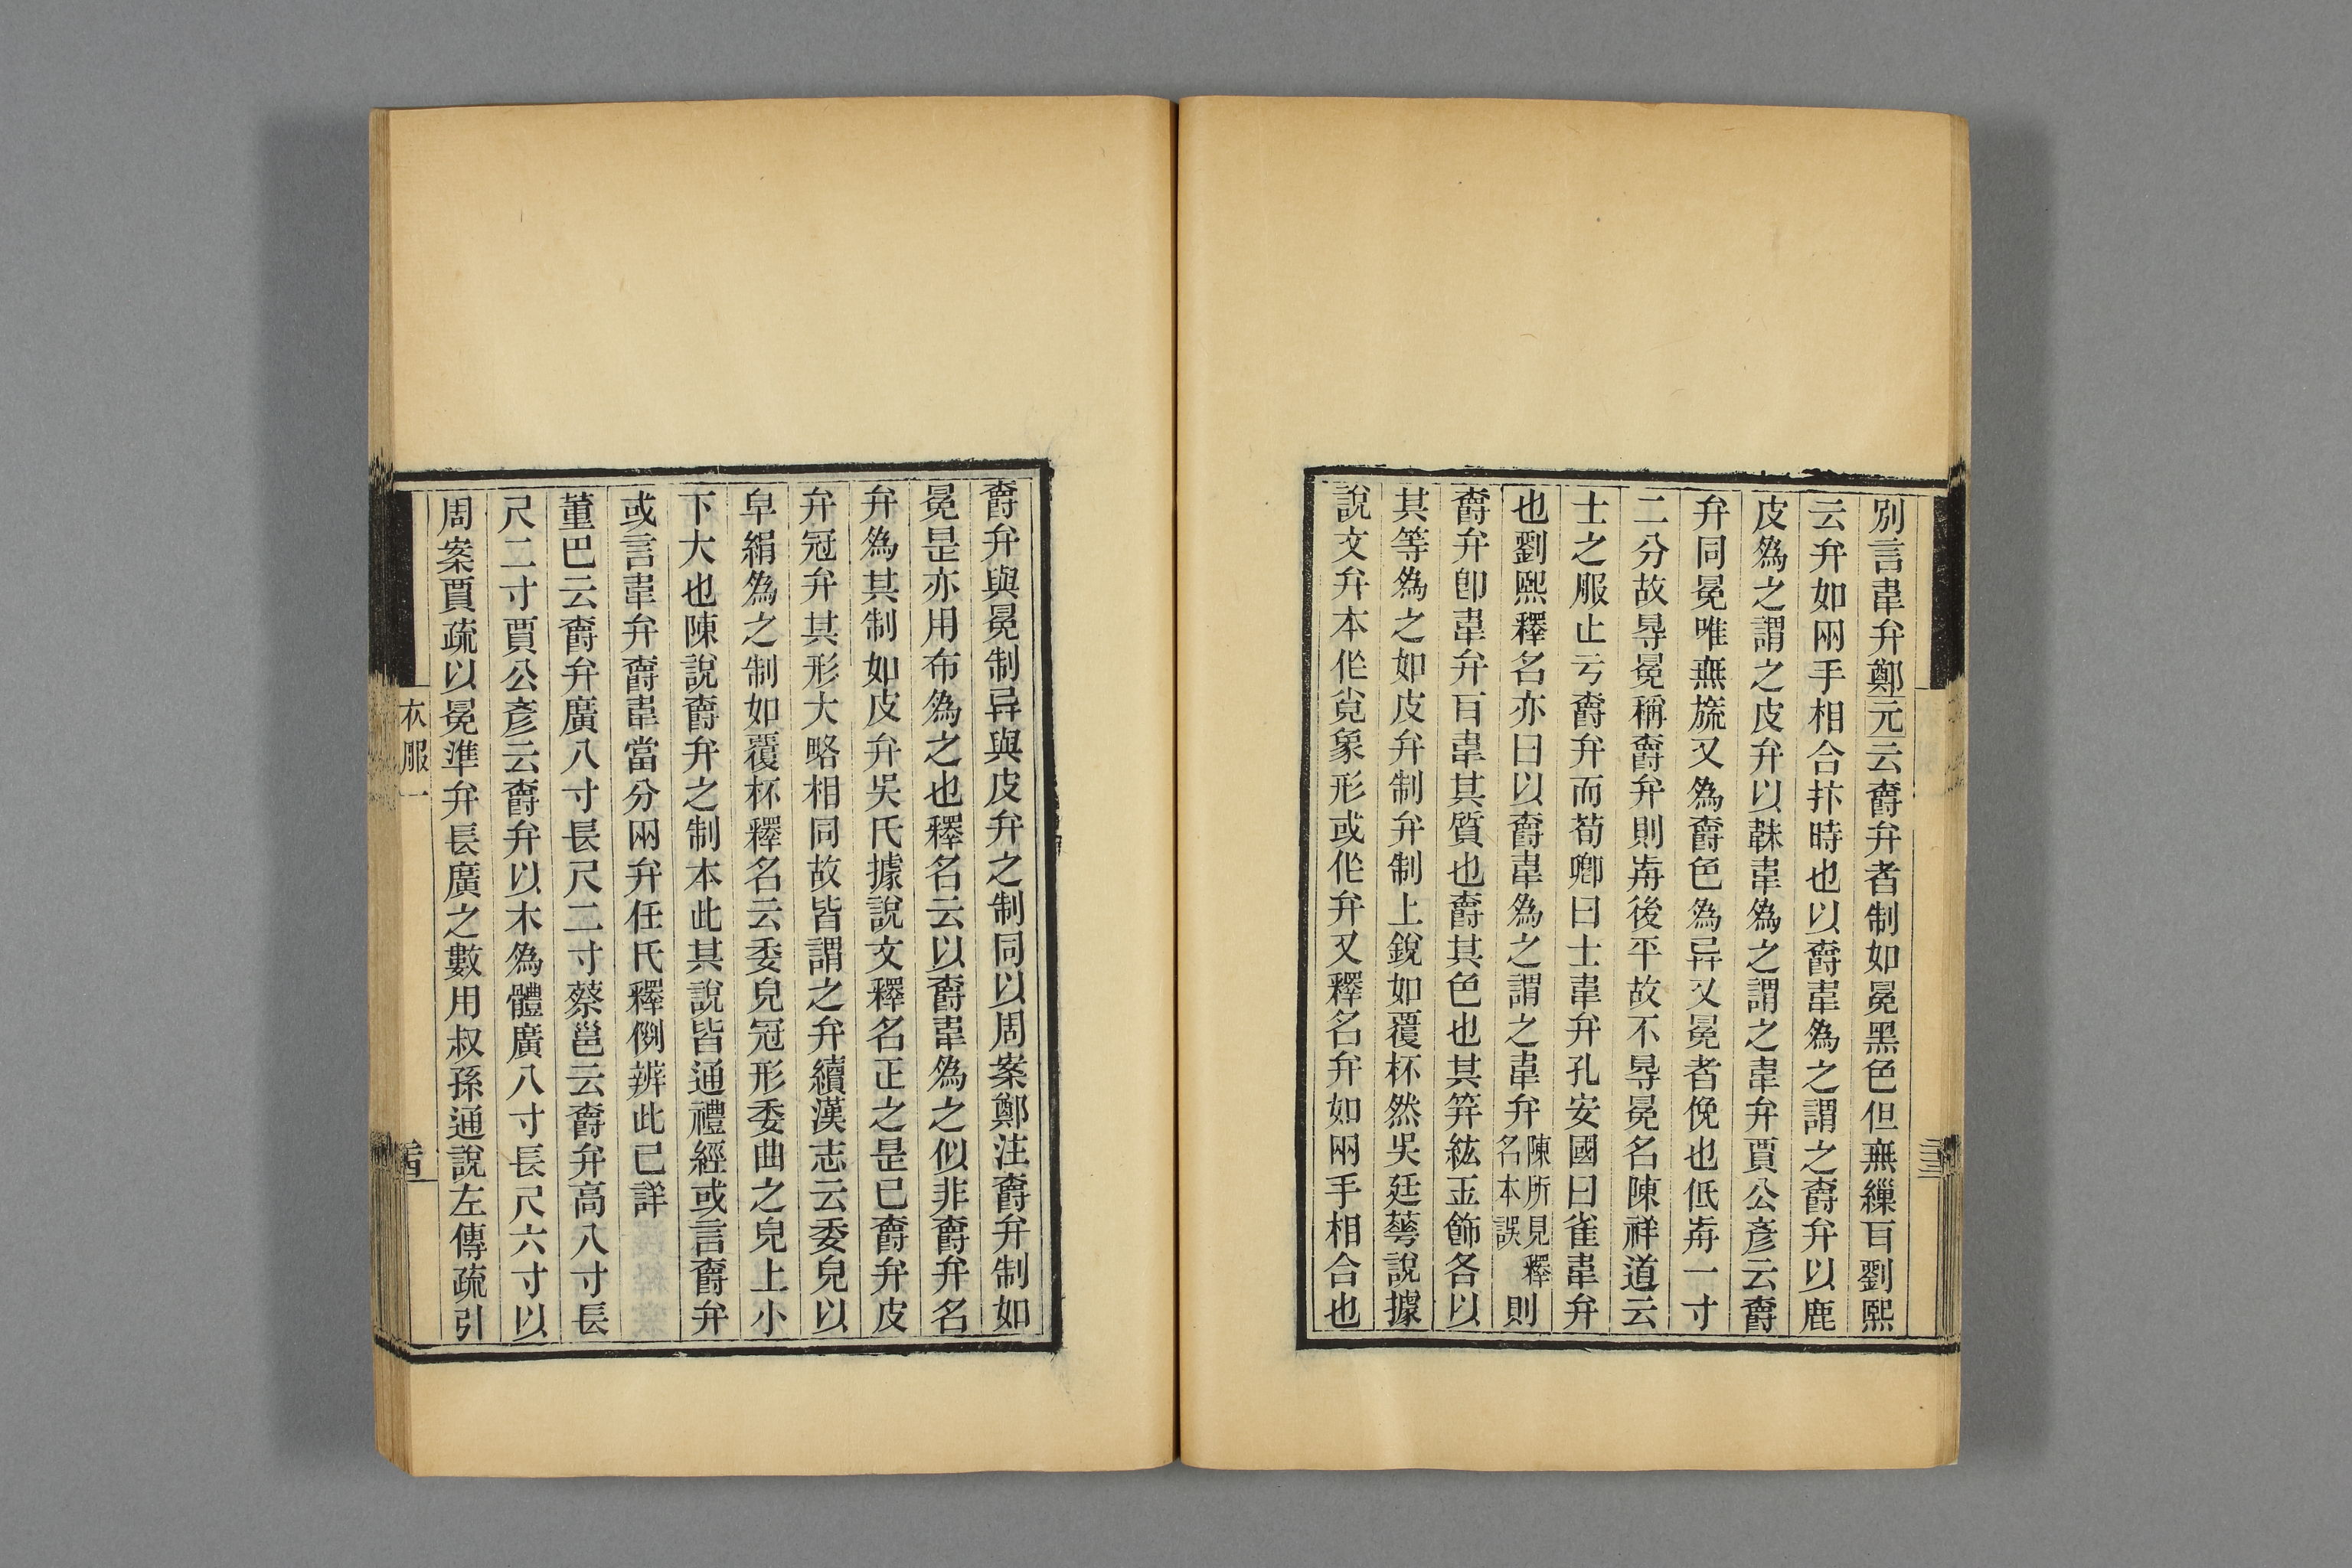 別言韋弁鄭元云爵弁者制如冕黑色但無繅耳劉熙
云弁如兩手相合抃時也以爵韋爲之謂之爵弁以鹿
皮爲之謂之皮弁以韎韋爲之謂之韋弁賈公彥云爵
弁同冕唯無旒又爲爵色爲异又冕者俛也低歬一寸
二分故㝵冕稱爵弁則歬後平故不㝵冕名陳祥道云
士之服止亏爵弁而荀卿曰士韋弁孔安國曰雀韋弁
也劉熙釋名亦曰以爵韋爲之謂之韋弁陳所見釋名本誤則
爵弁卽韋弁耳韋其質也爵其色也其筓紘玉飾各以
其等爲之如皮弁制弁制上銳如覆杯然吳廷華說據
說文弁本作㝸象形或作弁又釋名弁如兩手相合也
爵弁與冕制异與皮弁之制同以周案鄭注爵弁制如
冕是亦用布爲之也釋名云以爵韋爲之似非爵弁名
弁爲其制如皮弁吳氏據說文釋名正之是已爵弁皮
弁冠弁其形大略相同故皆謂之弁續漢志云委皃以
皁絹爲之制如覆杯釋名云委皃冠形委曲之皃上小
下大也陳說爵弁之制本此其說皆通禮經或言爵弁
或言韋弁爵韋當分兩弁任氏釋例辨此已詳
董巴云爵弁廣八寸長尺二寸蔡邕云爵弁高八寸長
尺二寸賈公彥云爵弁以木爲體廣八寸長尺六寸以
周案賈疏以冕準弁長廣之數用叔孫通說左傳疏引
衣服一